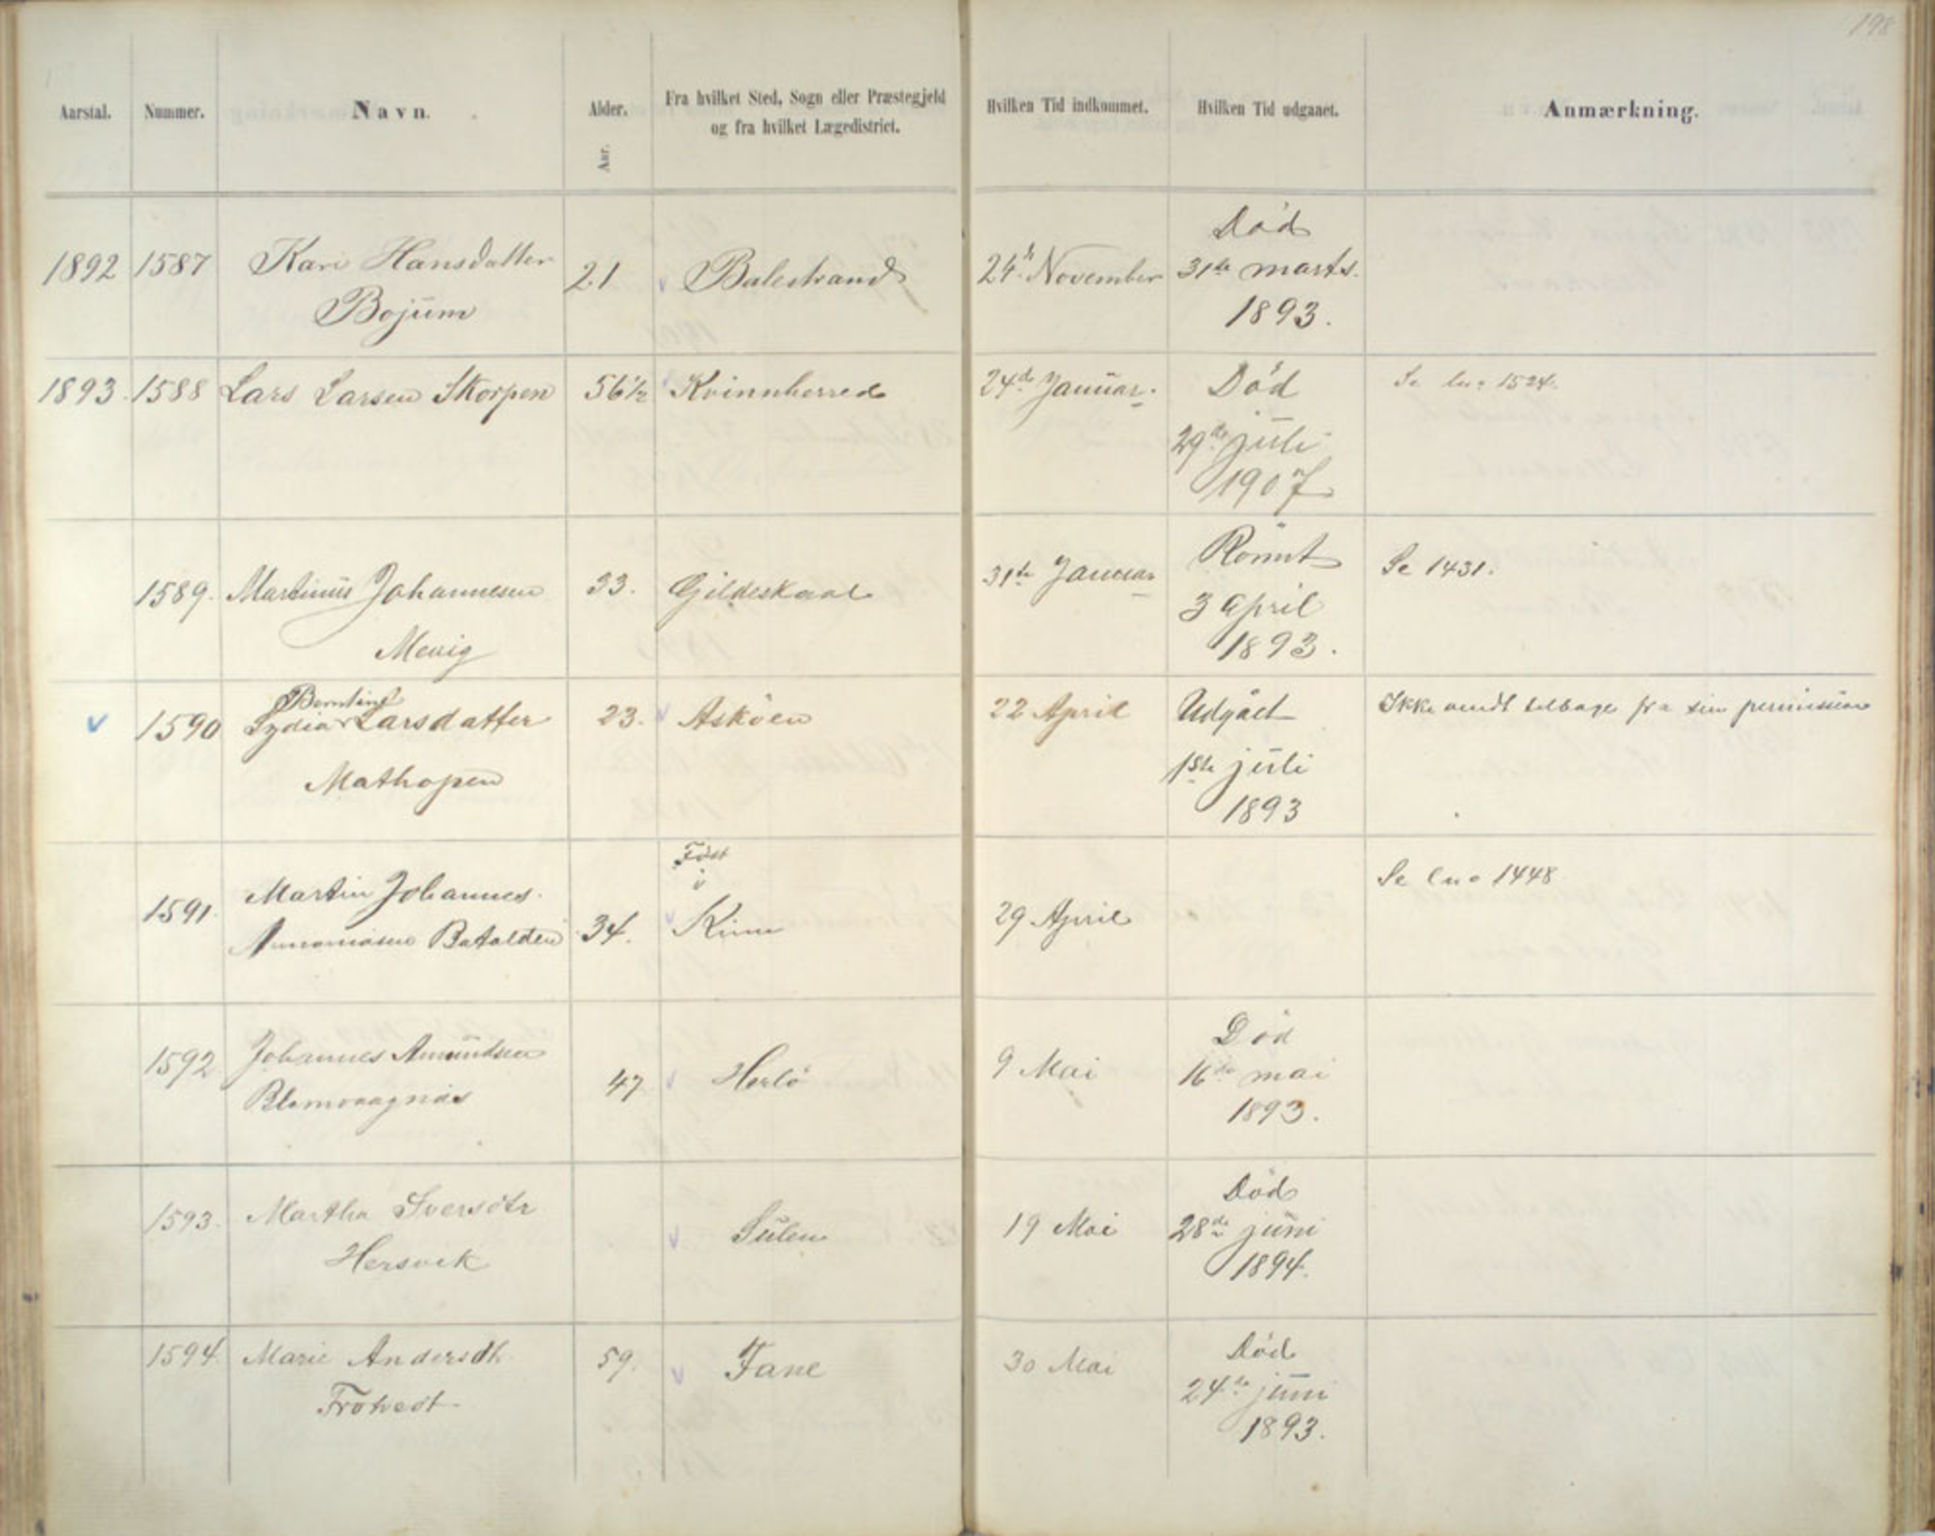 198
Aarstal. Nummer. Navn. Alder. Aar. Fra hvilket Sted, Sogn eller Præstegjeld
og fra hvilket Lægedistrict.
Hvilken Tid indkommet. Hvilken Tid udgaaet. Anmærkning.
1892 1587 Kari Hansdatter
Bojum
21 Balestrand 24 November
Død
31te marts.
1893.
1893. 1588 Lars Larsen Skorpen 56½ Kvinnherred 24de Januar. Død
29de juli
1907
Se lno 1524.
1589. Martinus Johannesen
Mevig
33. Gildeskaal 31te Januar
Römt
3 April
1893.
Se 1431.
1590 Berntine
Lydia Larsdatter
Mathopen
23. Asköen 22 April Udgået
1ste juli
1893
Ikke vendt tilbage fra sin permission
1591. Martin Johannes.
Batalden 34.
Født
i
Kinn
29 April
Se lno 1448
1592 Johannes Amundsen
Blomvaagnæs
47 Herlö 9 Mai
Død
16de mai
1893.
1593. Martha Iversdtr
Hersvik
Sulen 19 Mai
Død
28de juni
1894.
1594. Marie Andersdtr
59. Fane 30 Mai
Død
24de juni
1893.